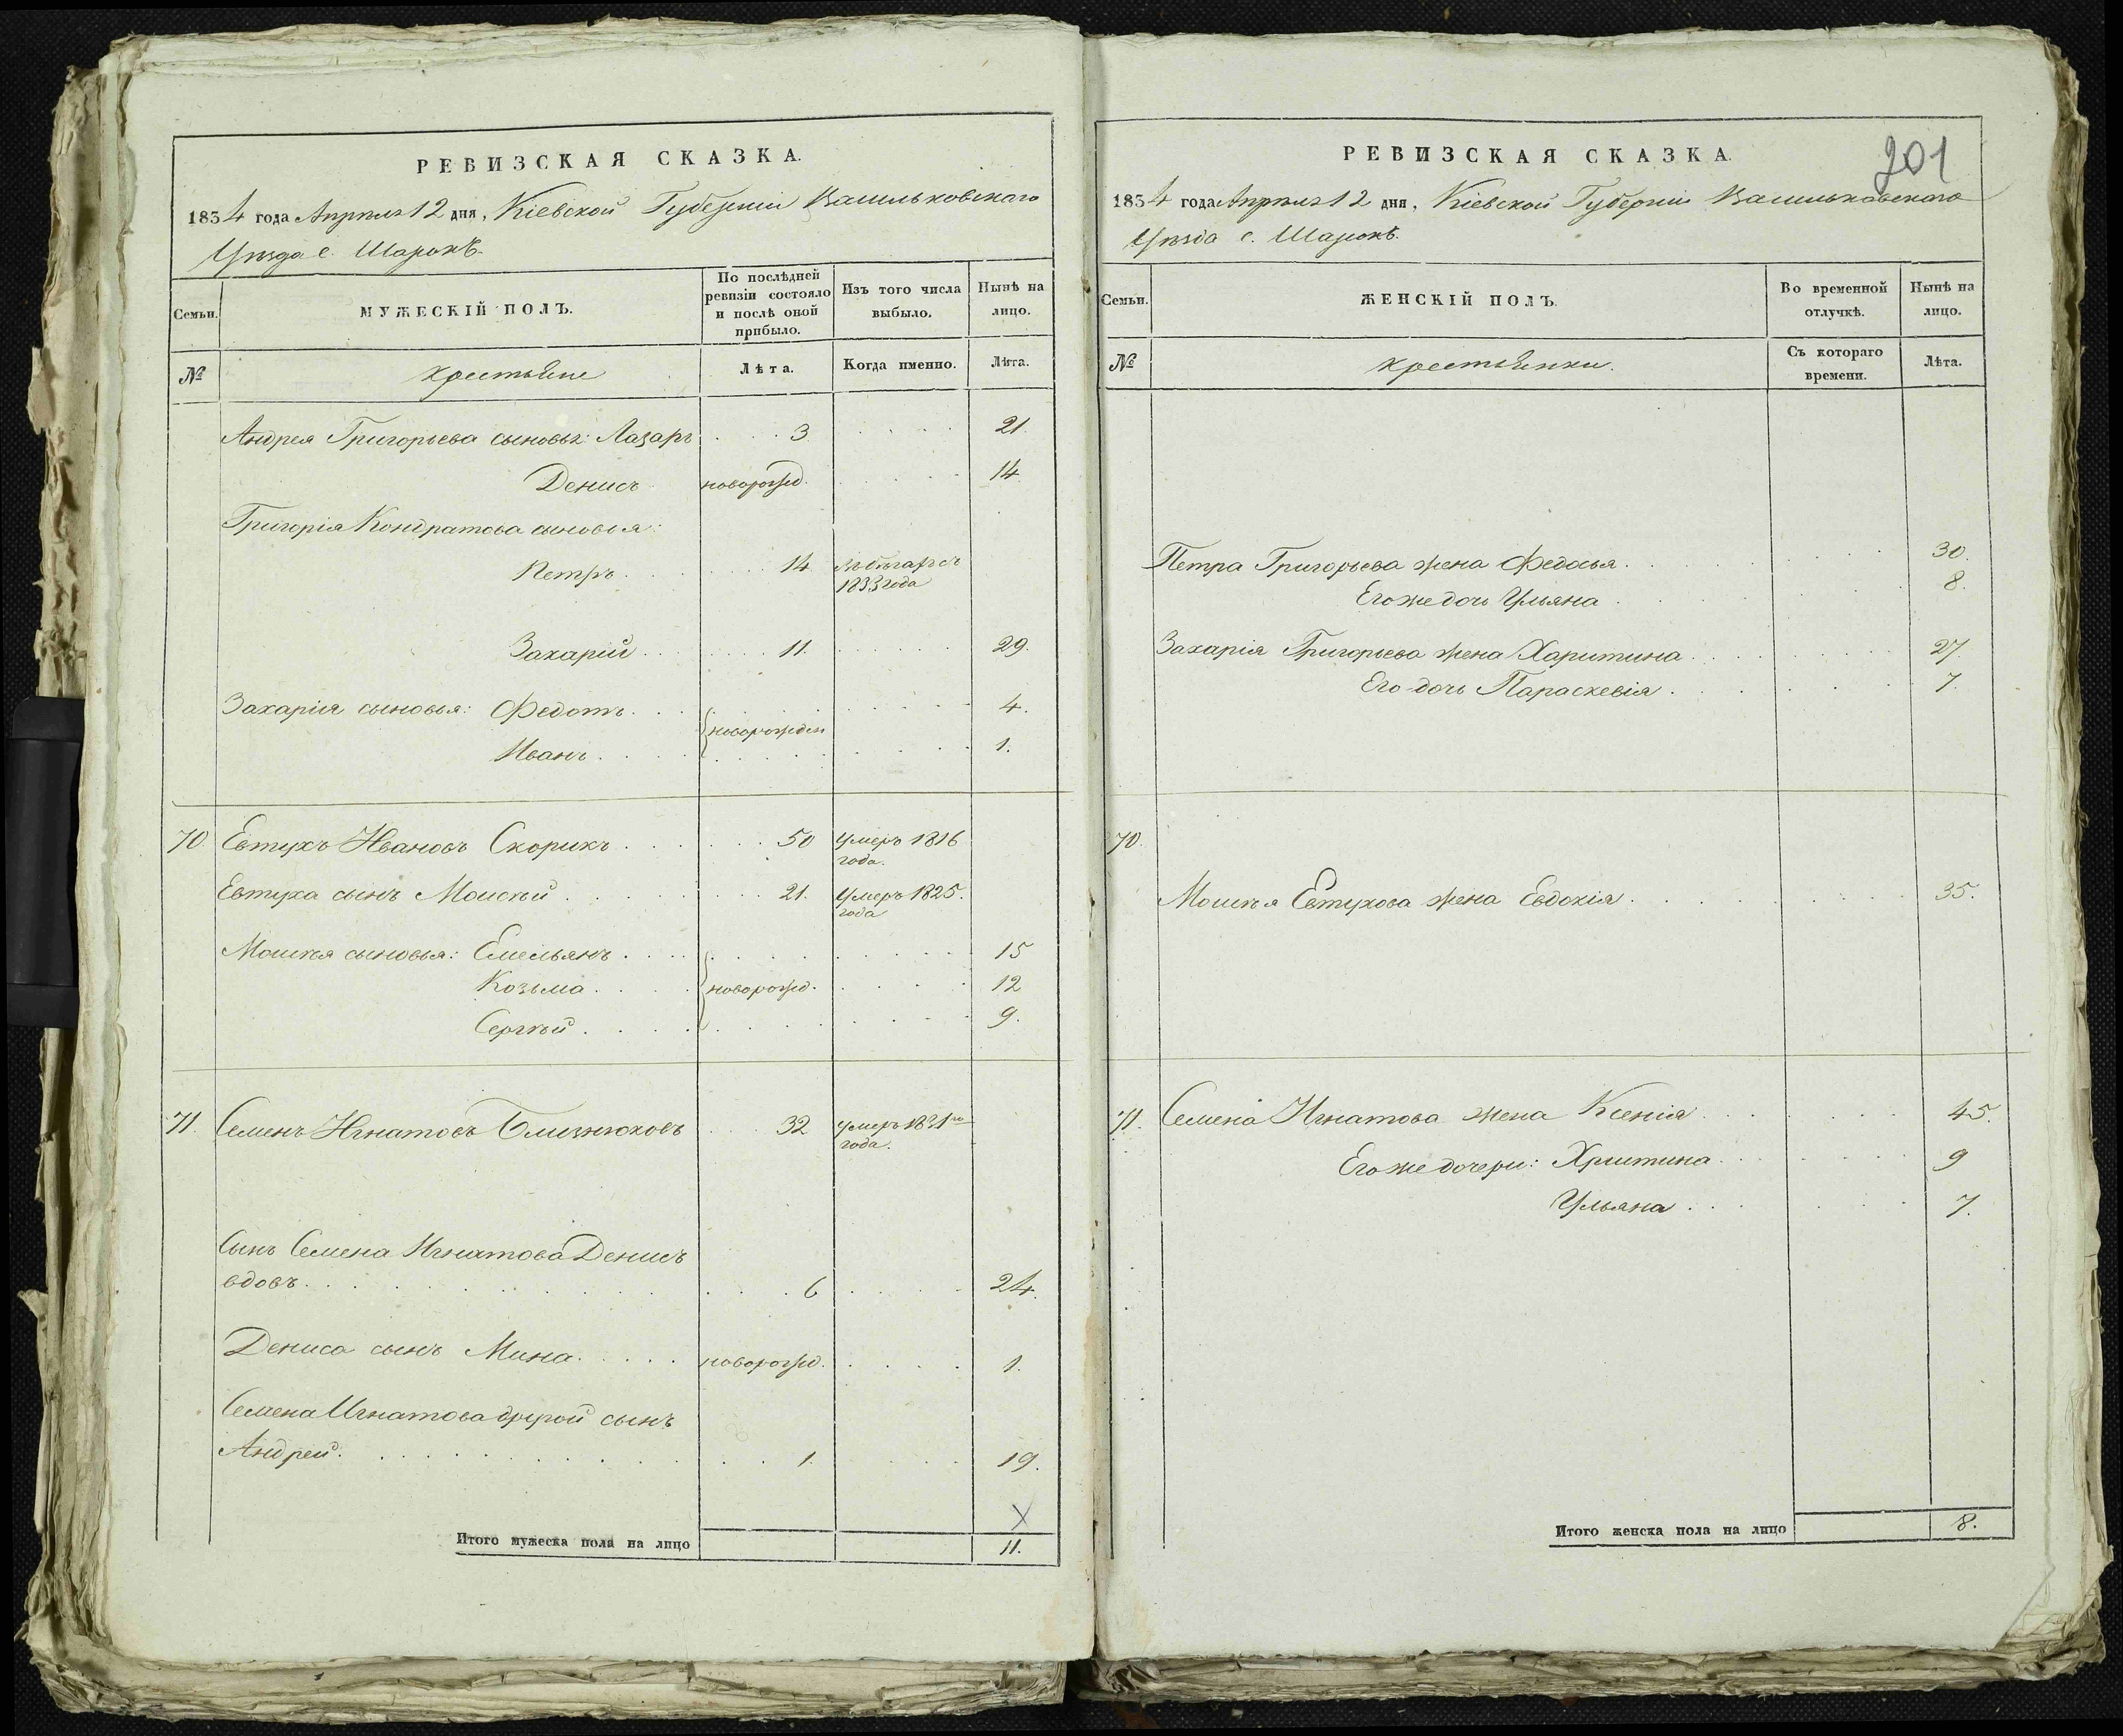 РЕВИЗСКАЯ СКАЗКА.
1834 года Апрѣля 12 дня, Кіевской Губерніи Васильковскаго
Уѣзда с. Шарокъ.
Семьи.
МУЖЕСКІЙ ПОЛЪ.
По послѣдней ревизіи состояло и послѣ оной прибыло.
Изъ того числа выбыло.
Нынѣ на лицо.
№
крестьяне
Лѣта.
Когда именно.
Лѣта.
Андрея Григорьева сыновья: Лазарь 3 21.
Денисъ новорожд. 14
Григорія Кондратова сыновья:
Петръ 14
1833 года
Захарій 11. 29.
Захарія сыновья: Федотъ 4.
новорожден
Иванъ 1.
70 Евтухъ Ивановъ Скорикъ 50 умеръ 1816
года.
Евтуха сынъ Моисѣй 21. умеръ 1825.
года
Моисѣя сыновья: Емельянъ 15
Козьма новорожд. 12
Сергѣй 9.
71. Семенъ Игнатовъ Близнюковъ 32 умеръ 1831го
года.
Сынъ Семена Игнатова Денисъ
вдовъ 6 24.
Дениса сынъ Мина новорожд. 1.
Семена Игнатова другой сынъ
Андрей 1. 19.
Х
Итого мужеска пола на лицо 11.
201
РЕВИЗСКАЯ СКАЗКА.
1834 года Апрѣля 12 дня, Кіевской Губерніи Васильковскаго
Уѣзда с. Шарокъ.
Семьи.
ЖЕНСКІЙ ПОЛЪ.
Во временной отлучкѣ.
Нынѣ на лицо.
№
крестьянки.
Съ котораго времени.
Лѣта.
Петра Григорьева жена Федосья 30.
Его же дочь Ульяна 8.
Захарія Григорьева жена Харитина 27.
Его дочь Параскевія 7.
70.
Моисѣя Евтухова жена Евдокія 35.
71. Семена Игнатова жена Ксенія 45.
Его же дочери: Христина 9
Ульяна 7.
Итого женска пола на лицо 8.